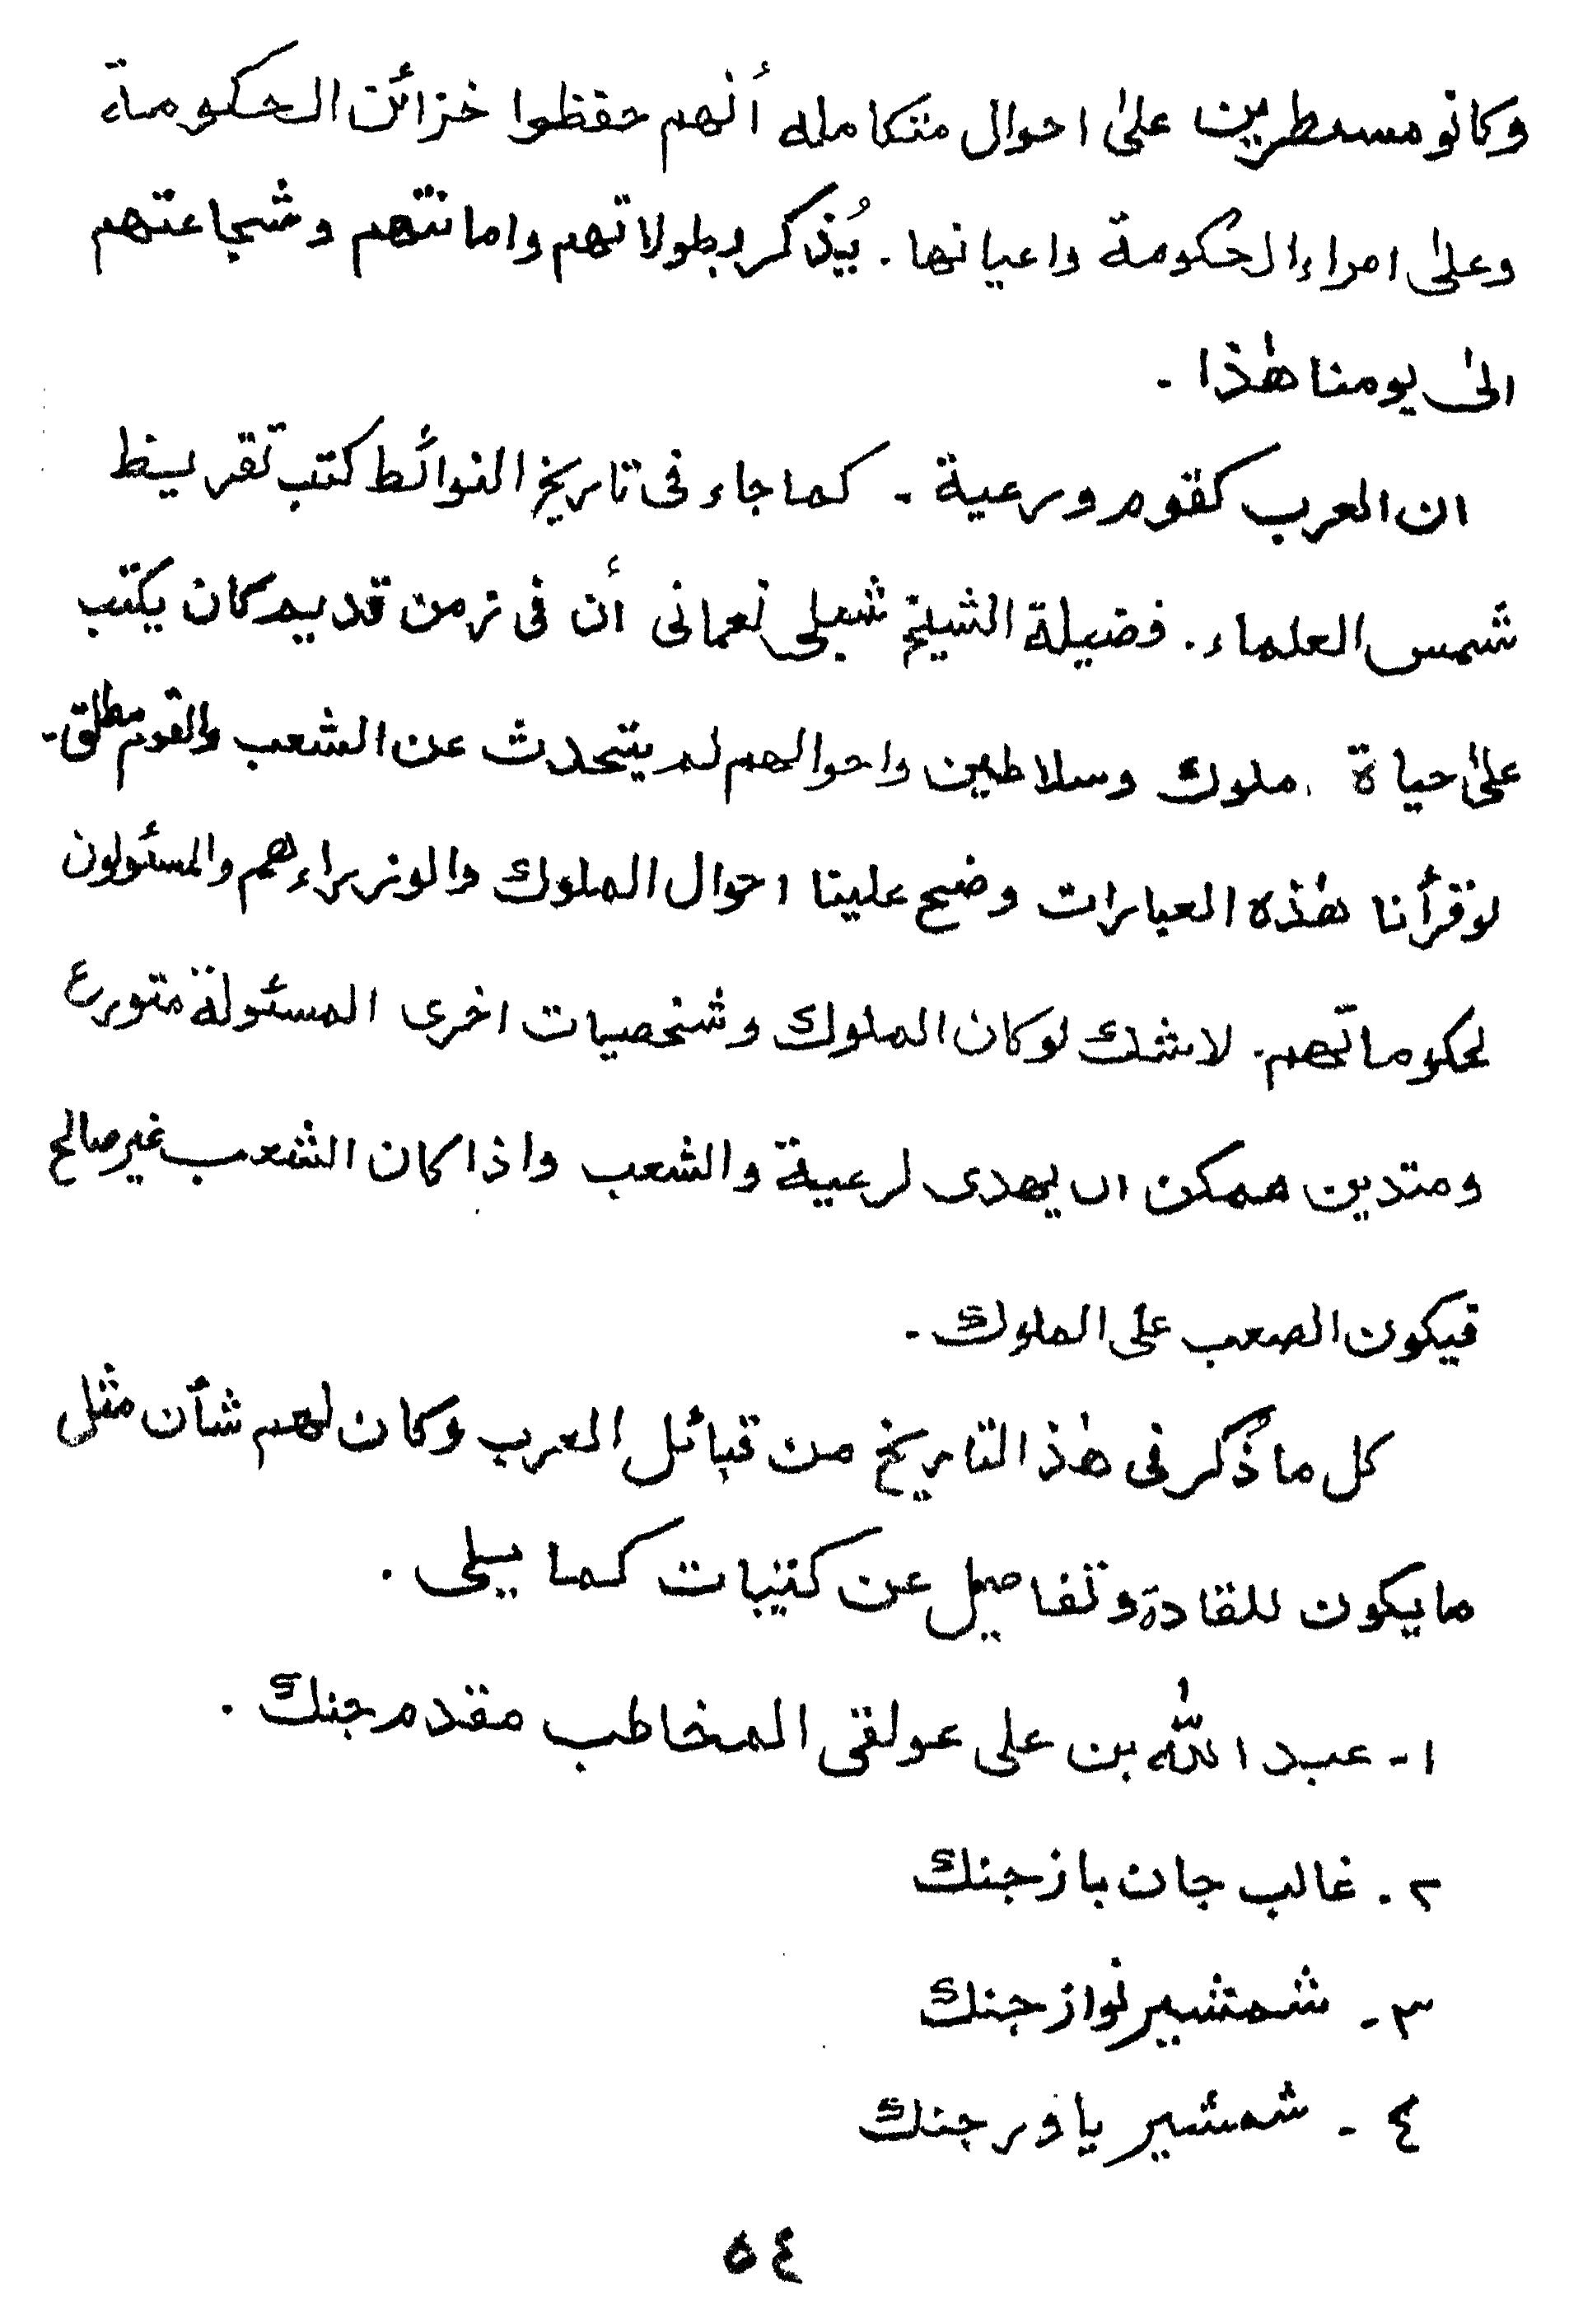 وكانو مسطرين علىٰ احوال متكامله أنهم حفظوا خزائن الحكومة
وعلىٰ امراء الحكومة واعيانها. يُذكر بطولاتهم وامانتهم وشجاعتهم
الىٰ يومنا هٰذا -
ان العرب كقوم ورعية - كما جاء فى تاريخ النوائط كتب تقريظ
شمس العلماء. فضيلة الشيخ شبلى نعمانى أن فى زمن قديم كان يكتب
علىٰ حياة ملوك وسلاطين واحوالهم لم يتحدث عن الشعب والقوم مطلق-
لوقرأنا هٰذه العبارات وضح علينا احوال الملوك والوزراءهم والمسئولون
لحكوماتهم. لاشك لوكان الملوك وشخصيات اخرى المسئولة متورع
ومتدين ممكن ان يهدى لرعية والشعب واذا كان الشعب غير صالح
فيكون الصعب على الملوك -
كل ما ذُكر فى هٰذ التاريخ من قبائل العرب وكان لهم شأن مثل
مايكون للقادة وتفاصيل عن كتيبات كما يلى .
١- عبد اللّٰه بن على عولقى المخاطب مقدم جنك .
٢ . غالب جان باز جنك
٣ - شمشير نواز جنك
٤ - شمشير ياور جنك
٥٤